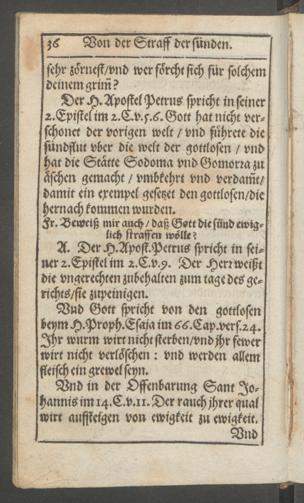 36 Von der Straff der sünden.
sehr zörnest/vnd wer förcht sich für solchem
deinem grim̃?
Der H. Apostel Petrus spricht in seiner
2. Epistel im 2.C.v.5.6. Gott hat nicht ver-
schonet der vorigen welt / vnd führete die
sündflut vber die welt der gottlosen / vnd
hat die Stätte Sodoma vnd Gomorra zu
äschen gemacht / vmbkehrt vnd verdam̃t/
damit ein exempel gesetzet den gottlosen/die
hernach kommen wurden.
Fr. Beweiß mir auch / daß Gott die sünd ewig-
lich straffen wölle?
A. Der H. Apost. Petrus spricht in sei-
ner 2. Epistel im 2.C.v.9. Der Herr weißt
die vngerechten zubehalten zum tage des ge-
richts/sie zupeinigen.
Vnd Gott spricht von den gottlosen
beym H. Proph. Esaia im 66. Cap. vers. 24.
Ihr wurm wirt nicht sterben/vnd jhr fewer
wirt nicht verlöschen : vnd werden allem
fleisch ein grewel seyn.
Vnd in der Offenbarung Sant Jo-
hannis im 14.C.v.11. Der rauch jhrer qual
wirt auffsteigen von ewigkeit zu ewigkeit.
Vnd